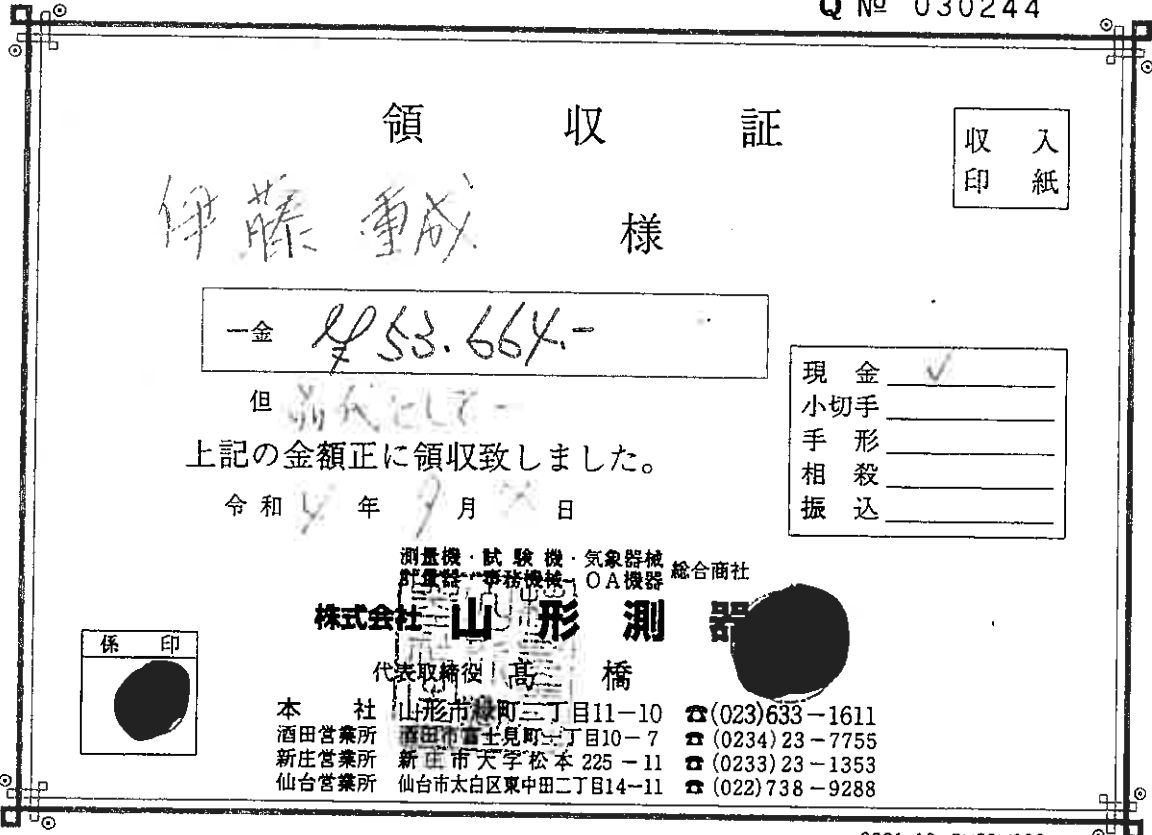 Q № 030244
領収証
収入
印紙
伊藤 重成 様
一金 ¥53.664.-
但 品代として-
上記の金額正に領収致しました。
令和 4 年 9 月 日
現金 ✓
小切手
手形
相殺
振込
測量機・試験機・気象器械
計量器・事務機械・OA機器
総合商社
株式会社 山形測器
代表取締役 髙橋
係印
本社 山形市緑町三丁目11-10 ☎(023)633-1611
酒田営業所 酒田市富士見町三丁目10-7 ☎(0234)23-7755
新庄営業所 新庄市大字松本225-11 ☎(0233)23-1353
仙台営業所 仙台市太白区東中田二丁目14-11 ☎(022)738-9288